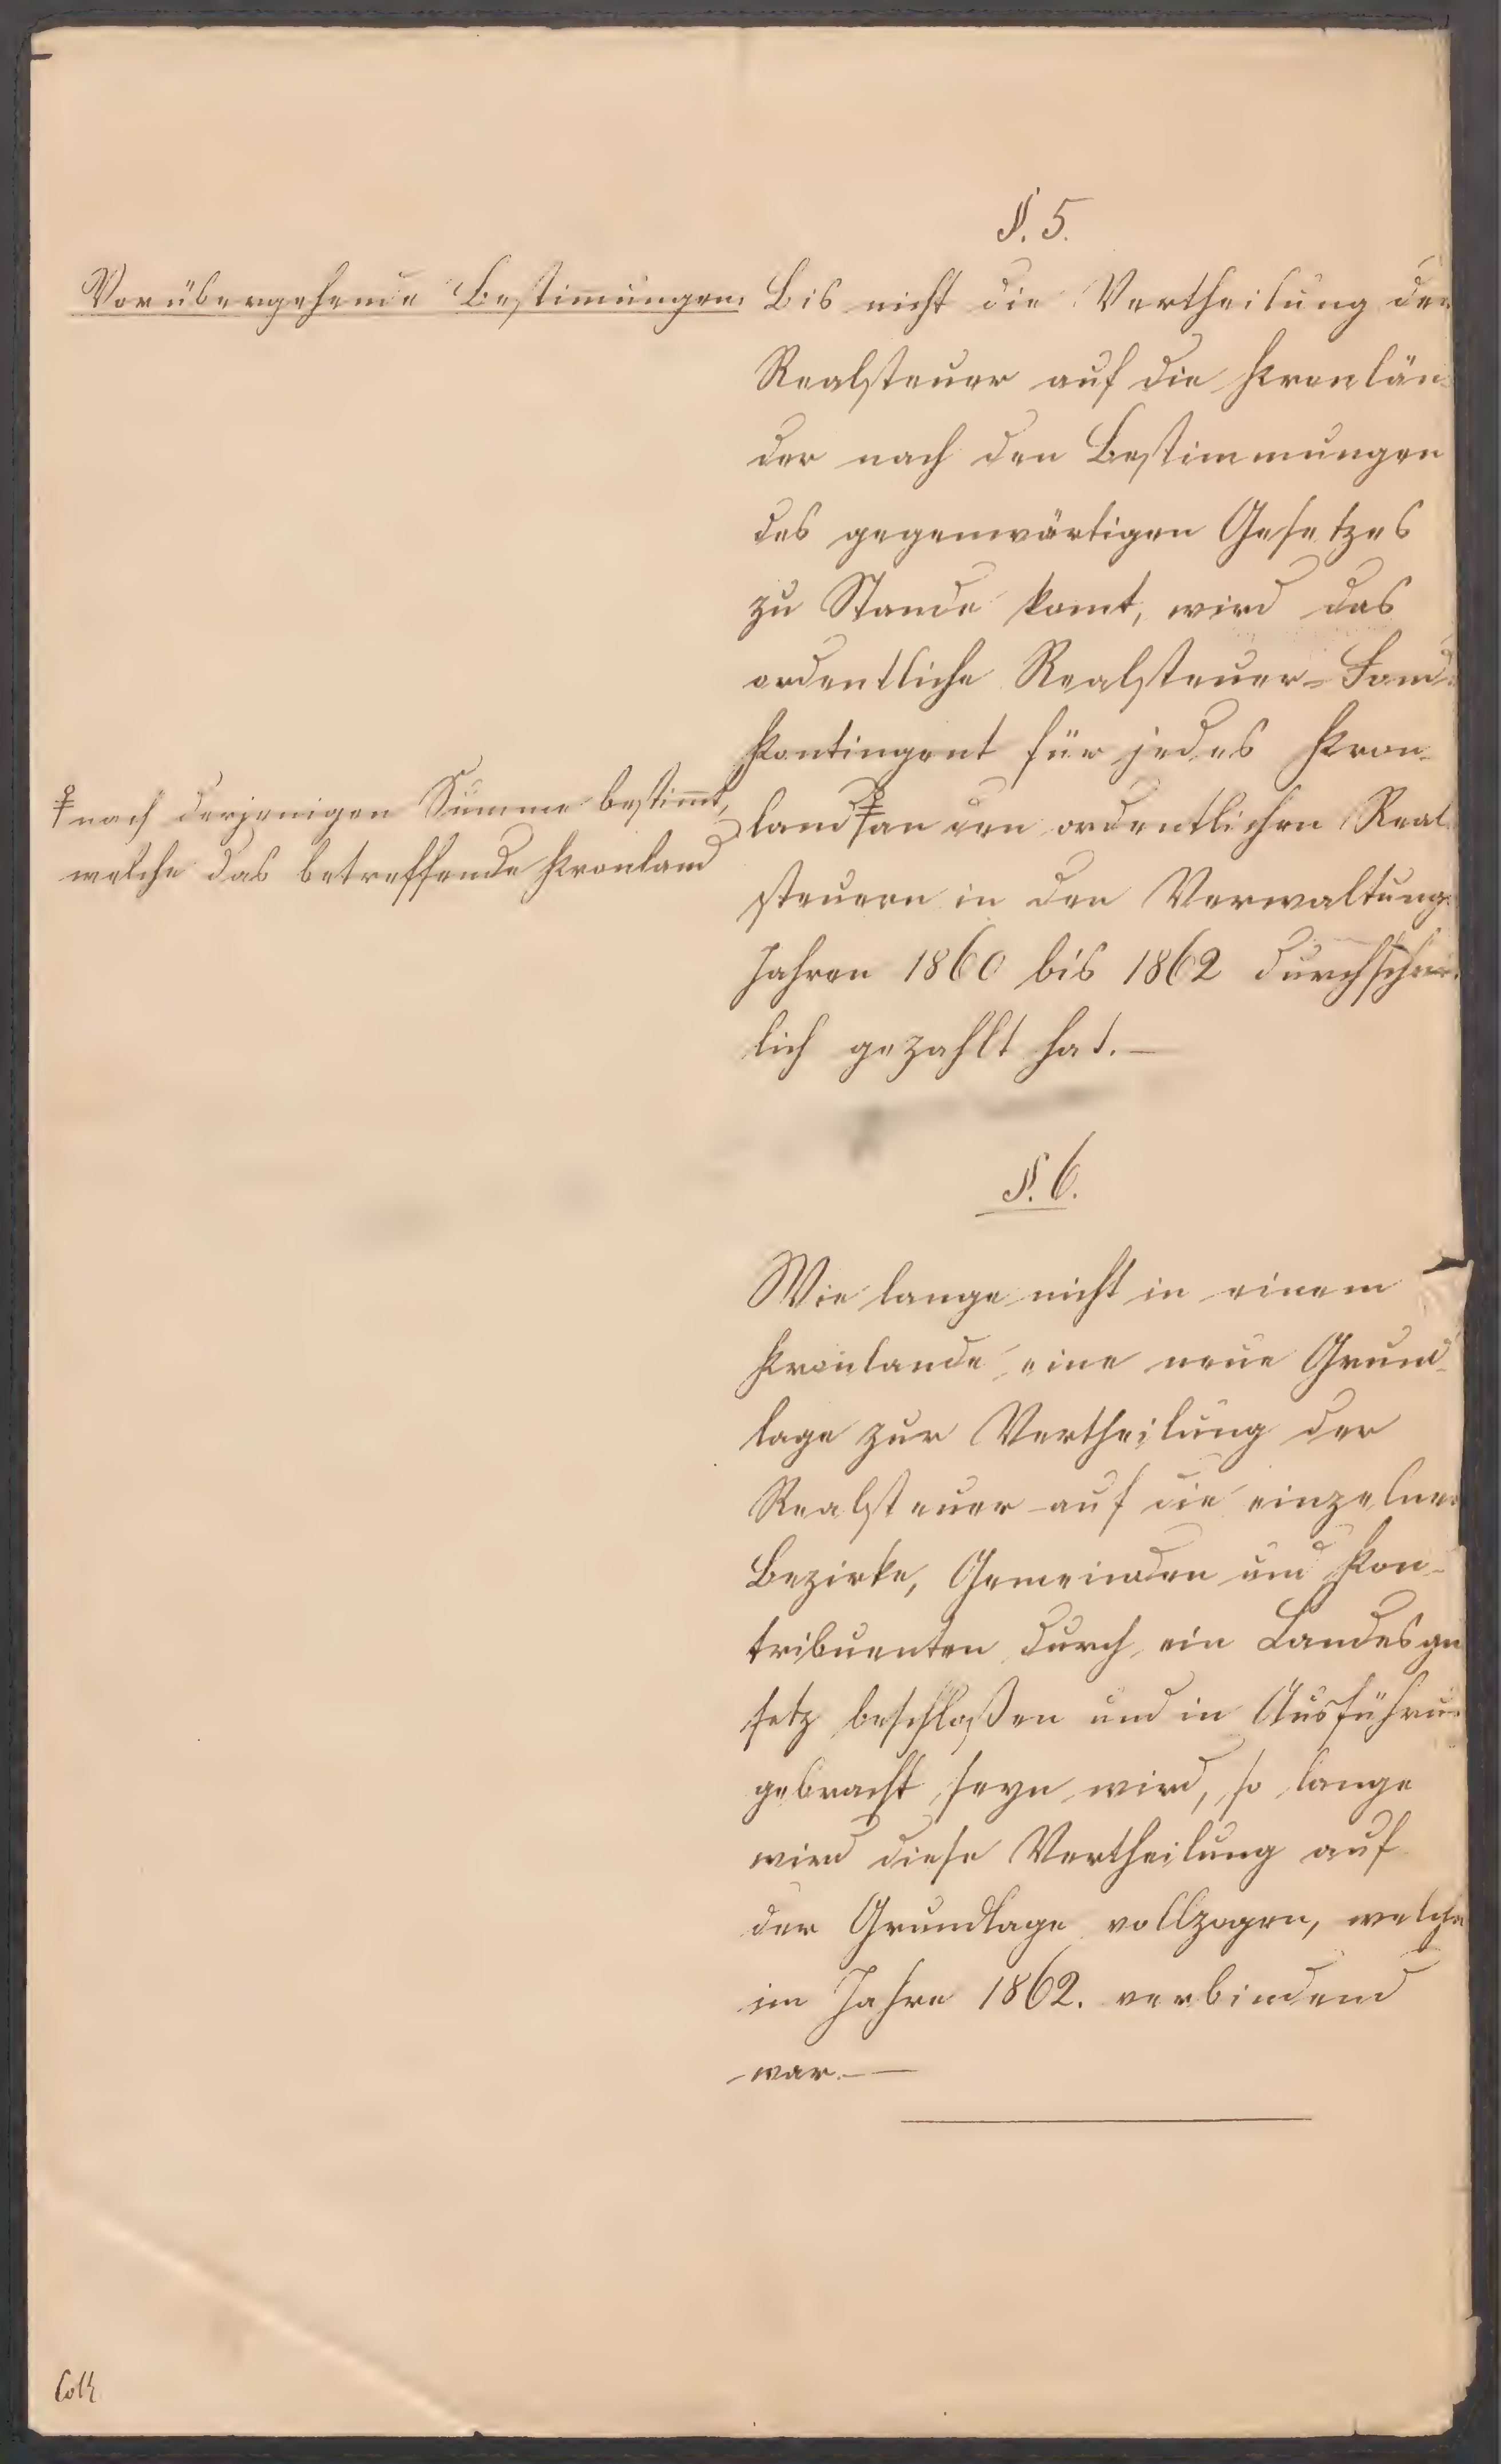 §. 5.
Vorübergehende Bestimungen.
Bis nicht die Vertheilung der
Realsteuer auf die Kronlän-
der nach den Bestimmungen
des gegenwärtigen Gesetzes
zu Stande komt, wird das
ordentliche Realsteuer-
Kontingent für jedes Kron-
land an den ordentlichen Real
steuern in den Verwaltungs
Jahren 1860 bis 1862
lich gezahlt hat. —
nach derjenigen Summe bestimt,
welche das betreffende Kronland
§. 6.
Wie lange nicht in einem
Kronlande eine neue Grund-
lage zur Vertheilung der
Realsteuer auf die einzelnen
Bezirke, Gemeinden und Kon-
tribuenten durch ein Landesge
setz beschloßen und in Ausführung
gebracht seyn wird, so lange
wird diese Vertheilung auf
der Grundlage vollzogen, welche
im Jahre 1862. verbindend
war. —